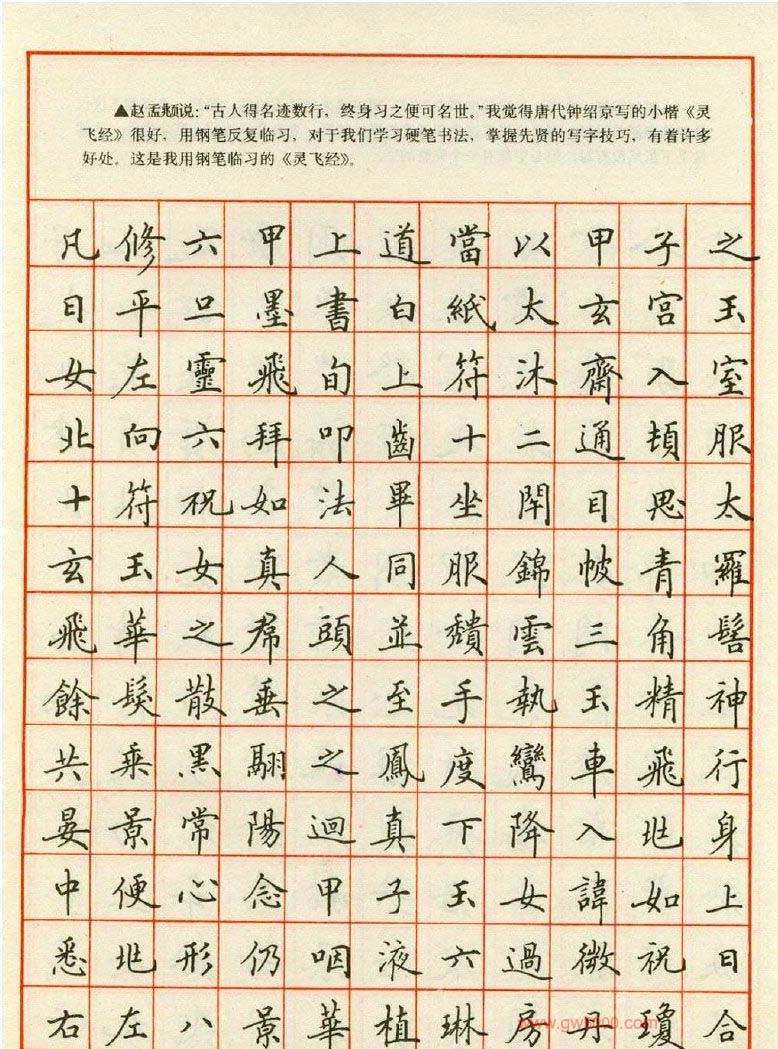 ▲赵孟頫说：“古人得名迹数行，终身习之便可名世。”我觉得唐代钟绍京写的小楷《灵
飞经》很好，用钢笔反复临习，对于我们学习硬笔书法，掌握先贤的写字技巧，有着许多
好处。这是我用钢笔临习的《灵飞经》。
凡修六甲上道當以甲子之
日平旦墨書白紙太玄宮玉
女左靈飛旬上符沐齋入室
北向六拜叩齒十二通頓服
十符祝如法畢坐閉目思太
玄玉女真人同服錦帔青羅
飛華之帬頭並穨雲三角髻
餘髮散垂之至手執玉精神
共乘黑翮之鳳度鸞車飛行
晏景常陽迴真下降入北身
中便心念甲子玉女諱如上
悉北形仍咽液六過微祝曰
右左八景華植琳房丹瓊合
www.gw5000.com